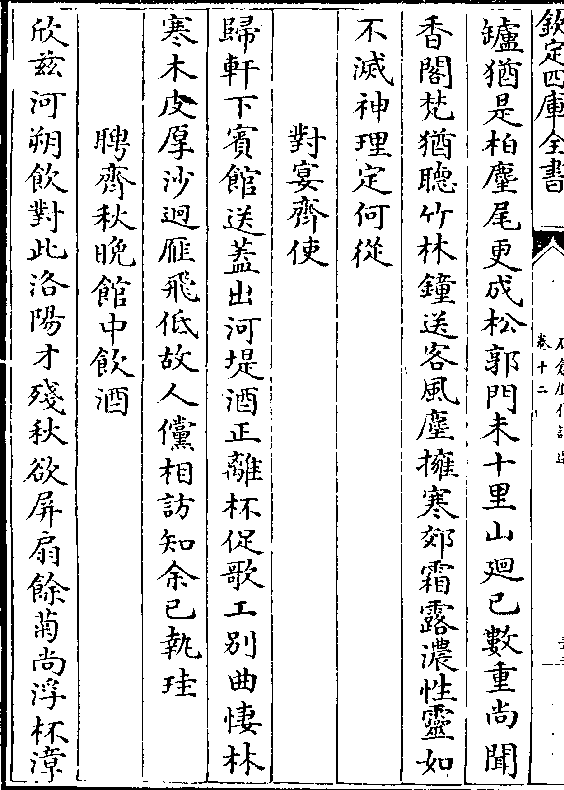 欽定四庫全書
卷十二
鑪猶是柏麈尾更成松郭門未十里山廻已數重尚聞
香閣梵猶聴竹林鐘送客風塵擁寒郊霜露濃性靈如
不滅神理定何從
對宴齊使
歸軒下賓館送葢出河堤酒正離杯促歌工别曲悽林
寒木皮厚沙迥雁飛低故人儻相訪知余已執珪
聘齊秋晩館中飲酒
欣兹河朔飲對此洛陽才殘秋欲屏扇餘菊尚浮杯漳